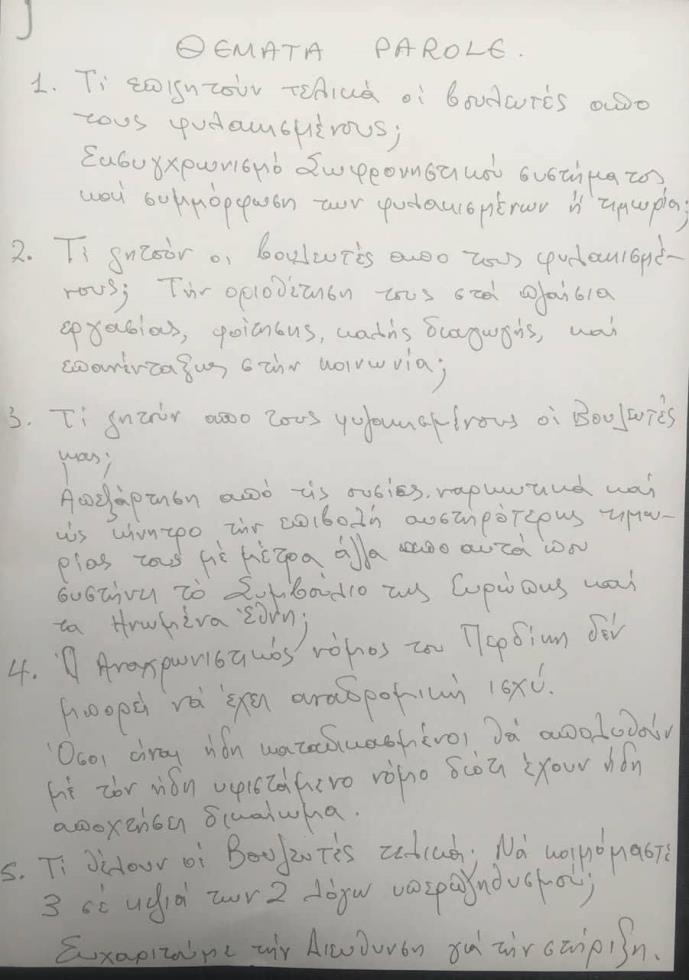 ΘΕΜΑΤΑ PAROLE.
1. Τί επιζητούν τελικά οί βουλευτές απο
τους φυλακισμένους;
Εκσυγχρωνισμό Σωφρονηστικού συστήματος
καί συμμόρφωση των φυλακισμένων ή τιμωρία;
2. Τί ζητούν οι βουλευτές απο τους φυλακισμέ-
νους; Τήν οριοθέτηση τους στά πλαίσια
εργασίας, φοίτησης, καλής διαγωγής, καί
επανένταξης στήν κοινωνία;
3. Τί ζητούν απο τους φυλακισμένους οί Βουλευτές
μας;
Απεξάρτηση από τίς ουσίες, ναρκωτικά καί
ώς κίνητρο τήν επιβολή αυστηρότερης τιμω-
ρίας τους μέ μέτρα άλλα απο αυτά που
συστήνει τό Συμβούλιο της Ευρώπης καί
τα Ηνωμένα Έθνη;
4. Ό Αναχρωνιστικός νόμος του Περδίκη δέν
μπορεί νά έχει αναδρομική ισχύ.
Όσοι είναι ήδη καταδικασμένοι θά απολυθούν
μέ τόν ήδη υφιστάμενο νόμο διότι έχουν ήδη
αποχτήσει δικαίωμα.
5. Τί θέλουν οί Βουλευτές τελικά; Νά κοιμόμαστε
3 σέ κελιά των 2 λόγω υπερπληθυσμού;
Ευχαριτούμε τήν Διεύθυνση γιά τήν στήριξη.